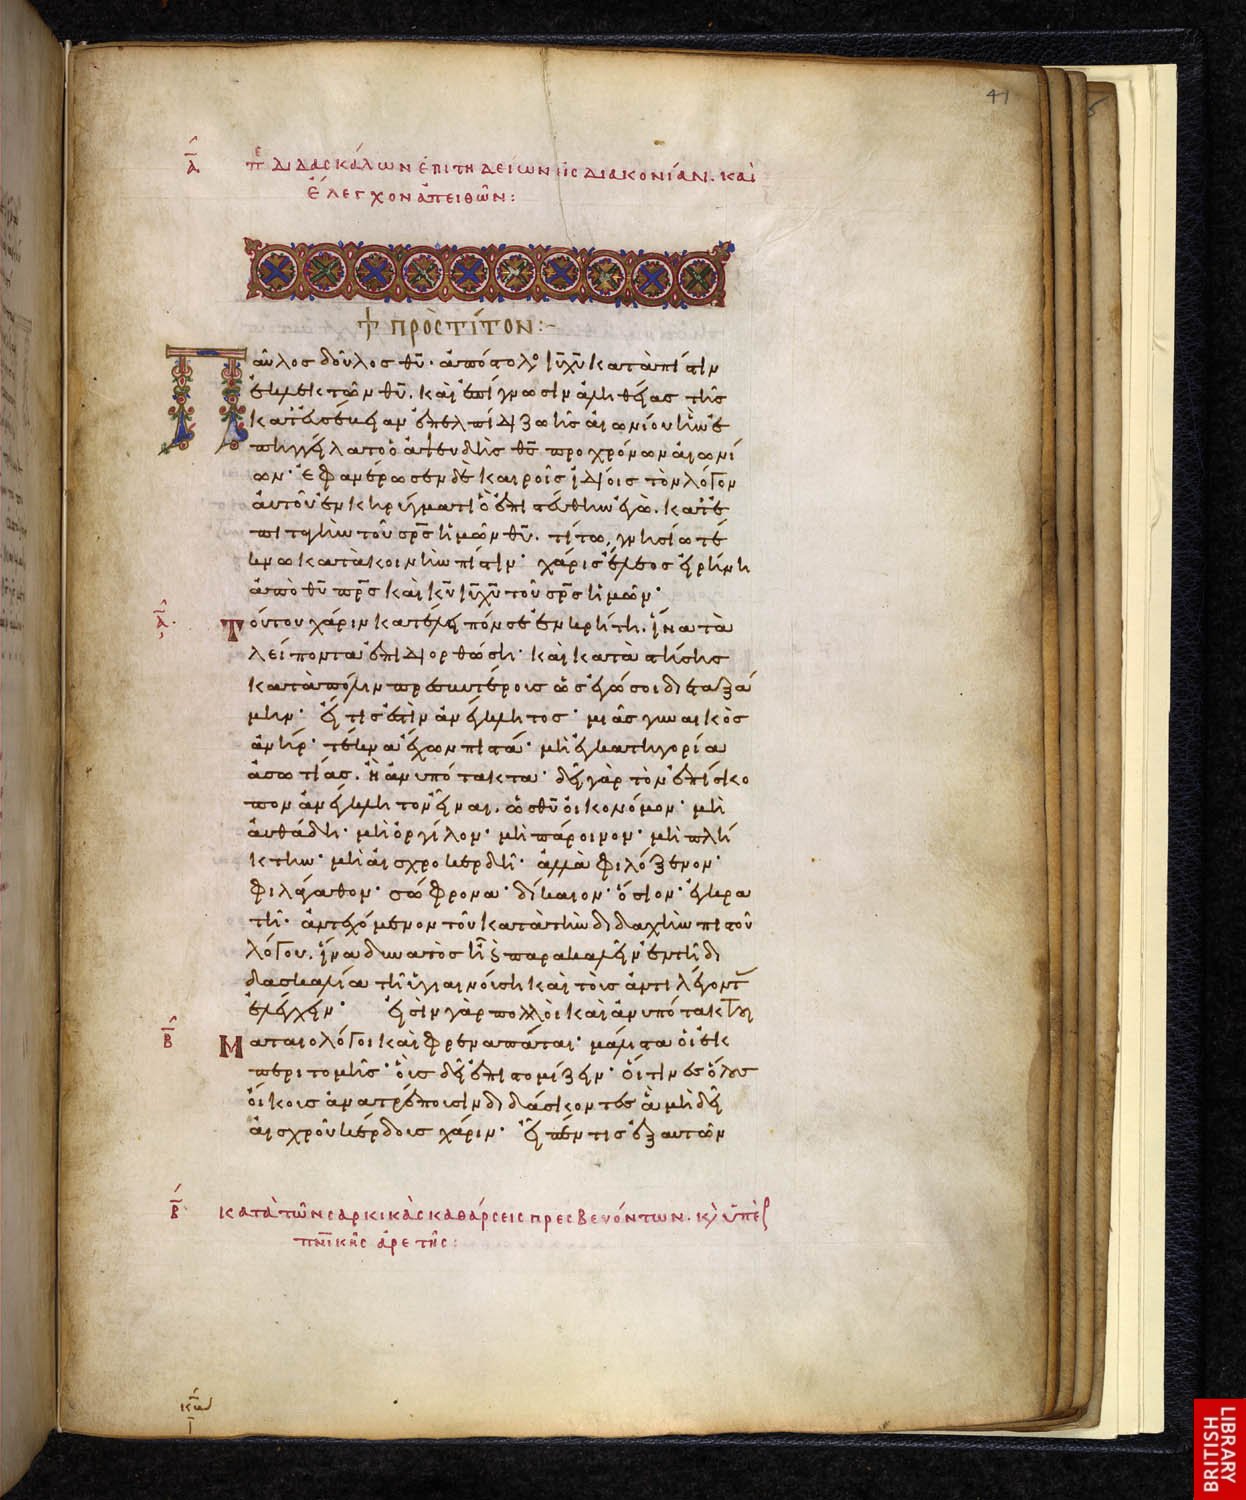 41
Α Πε διδασκάλων ἐπιτηδείων εἰς διακονίαν. καὶ
ἔλεγχον ἀπειθῶν:
† ΠΡΟΣ ΤΙΤΟΝ:-
Παῦλος δοῦλος θυ· ἀπόστολος ιυ χυ κατὰ πίστιν
ἐκλεκτῶν θυ. καὶ ἐπίγνωσιν ἀληθείας τῆς
κατ' ἐυσέβειαν ἐπ' ἐλπίδι ζωῆς αἰωνίου ἣν ἐ
πηγγείλατο ὁ ἀψευδὴς θς πρὸ χρόνων αἰωνί
ων· ἐφανέρωσεν δὲ καιροῖς ἰδίοις τὸν λόγον
ἀυτοῦ ἐν κηρύγματι ὃ ἐπιστεύθην ἐγὼ. κατ' ἐ
πιταγὴν τοῦ σρς ἡμῶν θυ. τίτω, γνησίω τέ
κνω κατὰ κοινὴν πίστιν· χάρις ἔλεος εἰρήνη
ἀπὸ θυ πρς καὶ κυ ιυ χυ τοῦ σρς ἡμῶν·
Α Τούτου χάριν κατέλειπόν σε ἐν κρήτη. ἵνα τὰ
λείποντα ἐπιδιορθώση· καὶ καταστήσης
κατὰ πόλιν πρεσβυτέροις ὡς ἐγώ σοι διεταξά
μην· εἴ τις ἐστὶν ἀνέγκλητος· μιᾶς γυναικὸς
ἀνήρ· τέκνα ἔχων πιστά· μὴ ἐν κατηγορία
ἀσωτίας. ἢ ἀνυπότακτα· δεῖ γὰρ τὸν ἐπίσκο
πον ἀνέγκλητον εἶναι. ὡς θυ οἰκονόμον· μὴ
ἀυθάδη· μὴ ὀργίλον· μὴ πάροινον· μὴ πλή
κτην· μὴ αἰσχροκερδῆ· ἀλλὰ φιλόξενον·
φιλάγαθον· σώφρονα· δίκαιον· ὅσιον· ἐγκρα
τῆ· ἀντεχόμενον τοῦ κατὰ τὴν διδαχὴν πιστοῦ
λόγου. ἵνα δυνατὸς ἦ καὶ παρακαλεῖν ἐν τῆ δι
δασκαλία τῆ ὑγιαινούση καὶ τοὺς ἀντιλέγοντας
ἐλέγχειν· εἰσὶν γὰρ πολλοὶ καὶ ἀνυπότακτοι
Β Ματαιολόγοι καὶ φρεναπάται· μάλιστα οἱ ἐκ
περιτομῆς· οὓς δεῖ ἐπιστομίζειν· οἵτινες ὅλους
οἴκους ἀνατρέπουσιν διδάσκοντες ἃ μὴ δεῖ
αἰσχροῦ κέρδους χάριν· εἶπέν τις ἐξ αυτῶν
Β κατὰ τῶν σαρκικὰς καθάρσεις πρεσβευόντων. κ(αὶ) ὑπὲρ
πνικῆς ἀρετῆς:
BRITISH
LIBRARY